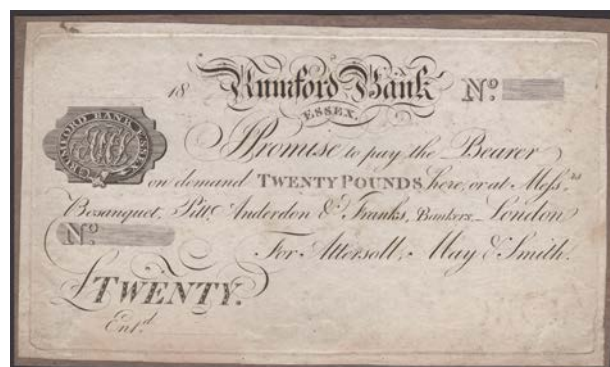 18 Rumford Bank No.
ESSEX.
RUMFORD BANK ESSEX
I Promise to pay the Bearer
on demand TWENTY POUNDS here, or at Mefs.rs
Bosanquet, Pitt, Anderdon & Franks, Bankers, London
No.
For Attersoll, May & Smith.
£TWENTY.
Ent.d